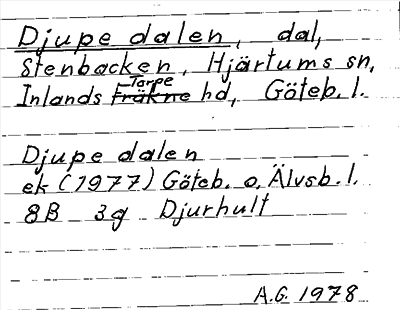 Djupe dalen, dal,
Stenbacken, Hjärtums sn,
Inlands Fräkne Torpe hd, Göteb. l.
Djupe dalen
ek (1977) Göteb. o. Älvsb. l.
8B 3g Djurhult
A.G. 1978